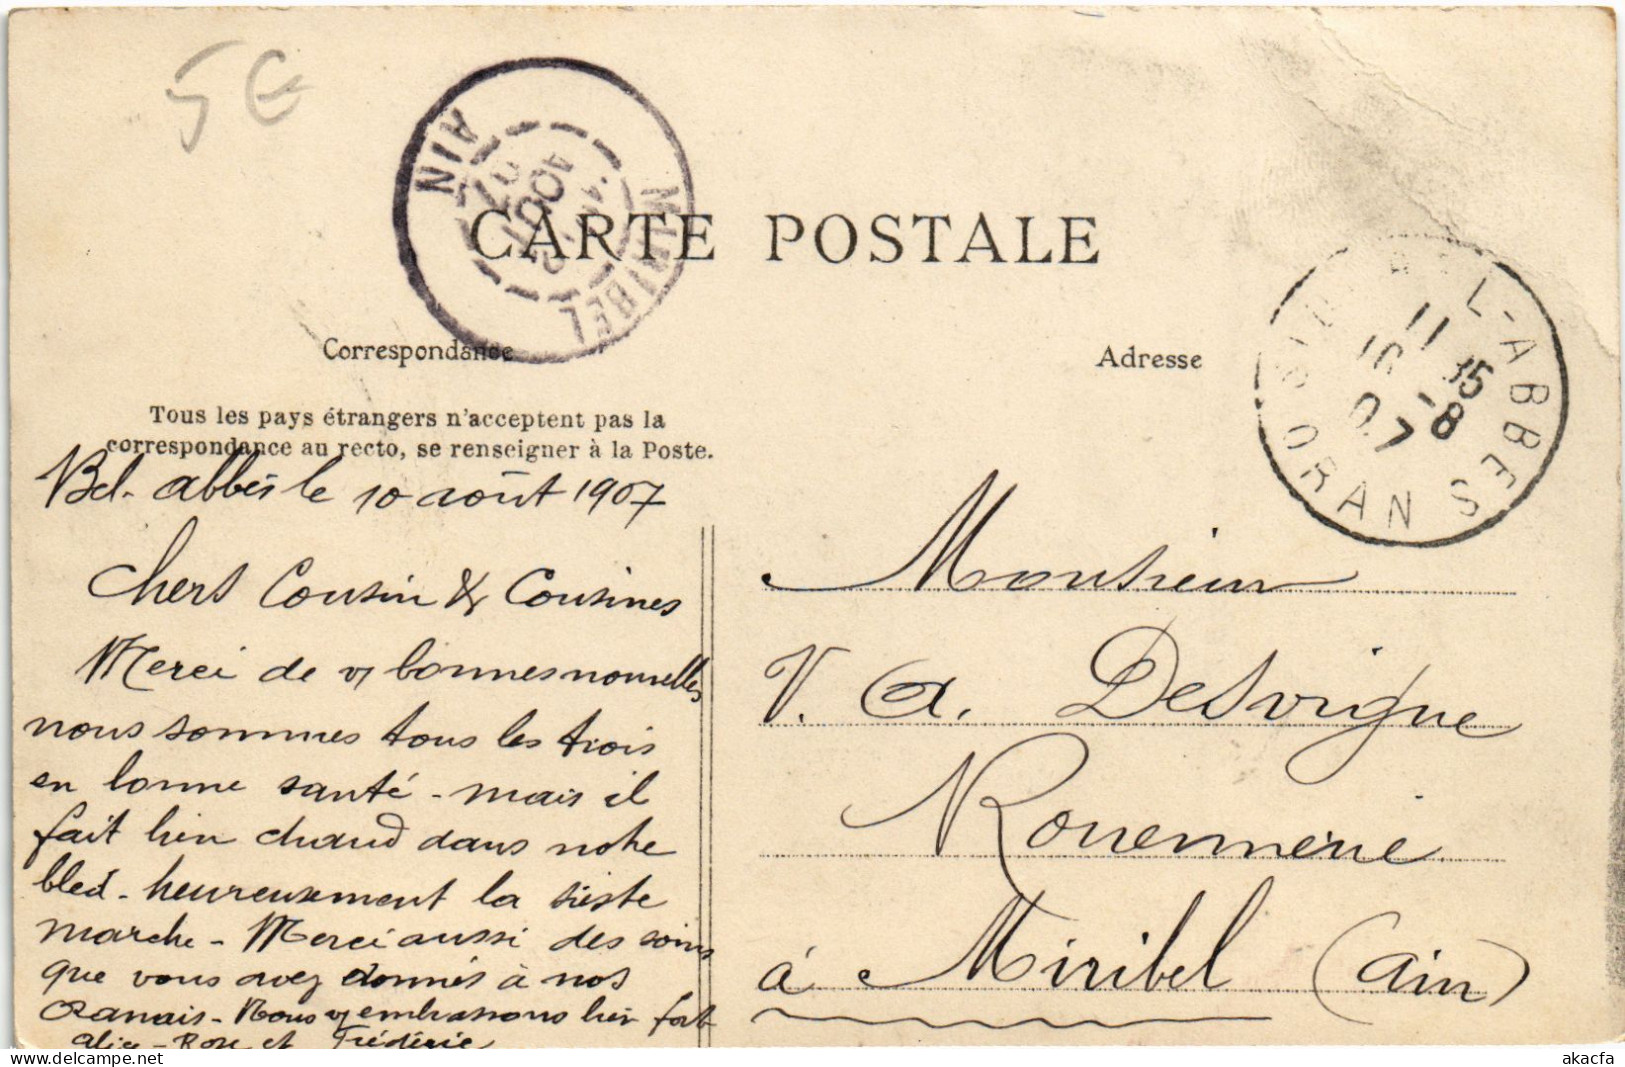 5 €
MIRIBEL
AIN
AOUT
07
CARTE POSTALE
Correspondance
Adresse
Tous les pays étrangers n'acceptent pas la
correspondance au recto, se renseigner à la Poste.
L-ABBES
ORAN
11 15
10 - 8
07
Bel-abbès le 10 août 1907
Chers Cousin & Cousines
Merci de vs bonnes nouvelles
nous sommes tous les trois
en bonne santé - mais il
fait bien chaud dans notre
bled - heureusement la sieste
marche - Merci aussi des soins
que vous avez donnés à nos
Oranais - Nous vs embrassons bien fort
Alice - Rose et Frédéric
Monsieur
V. A. Desvigne
Rouennerie
à Miribel (Ain)
akacfa
www.delcampe.net